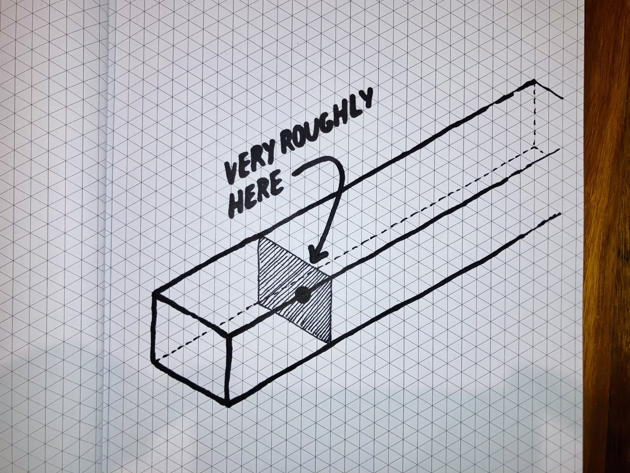 VERY ROUGHLY
HERE